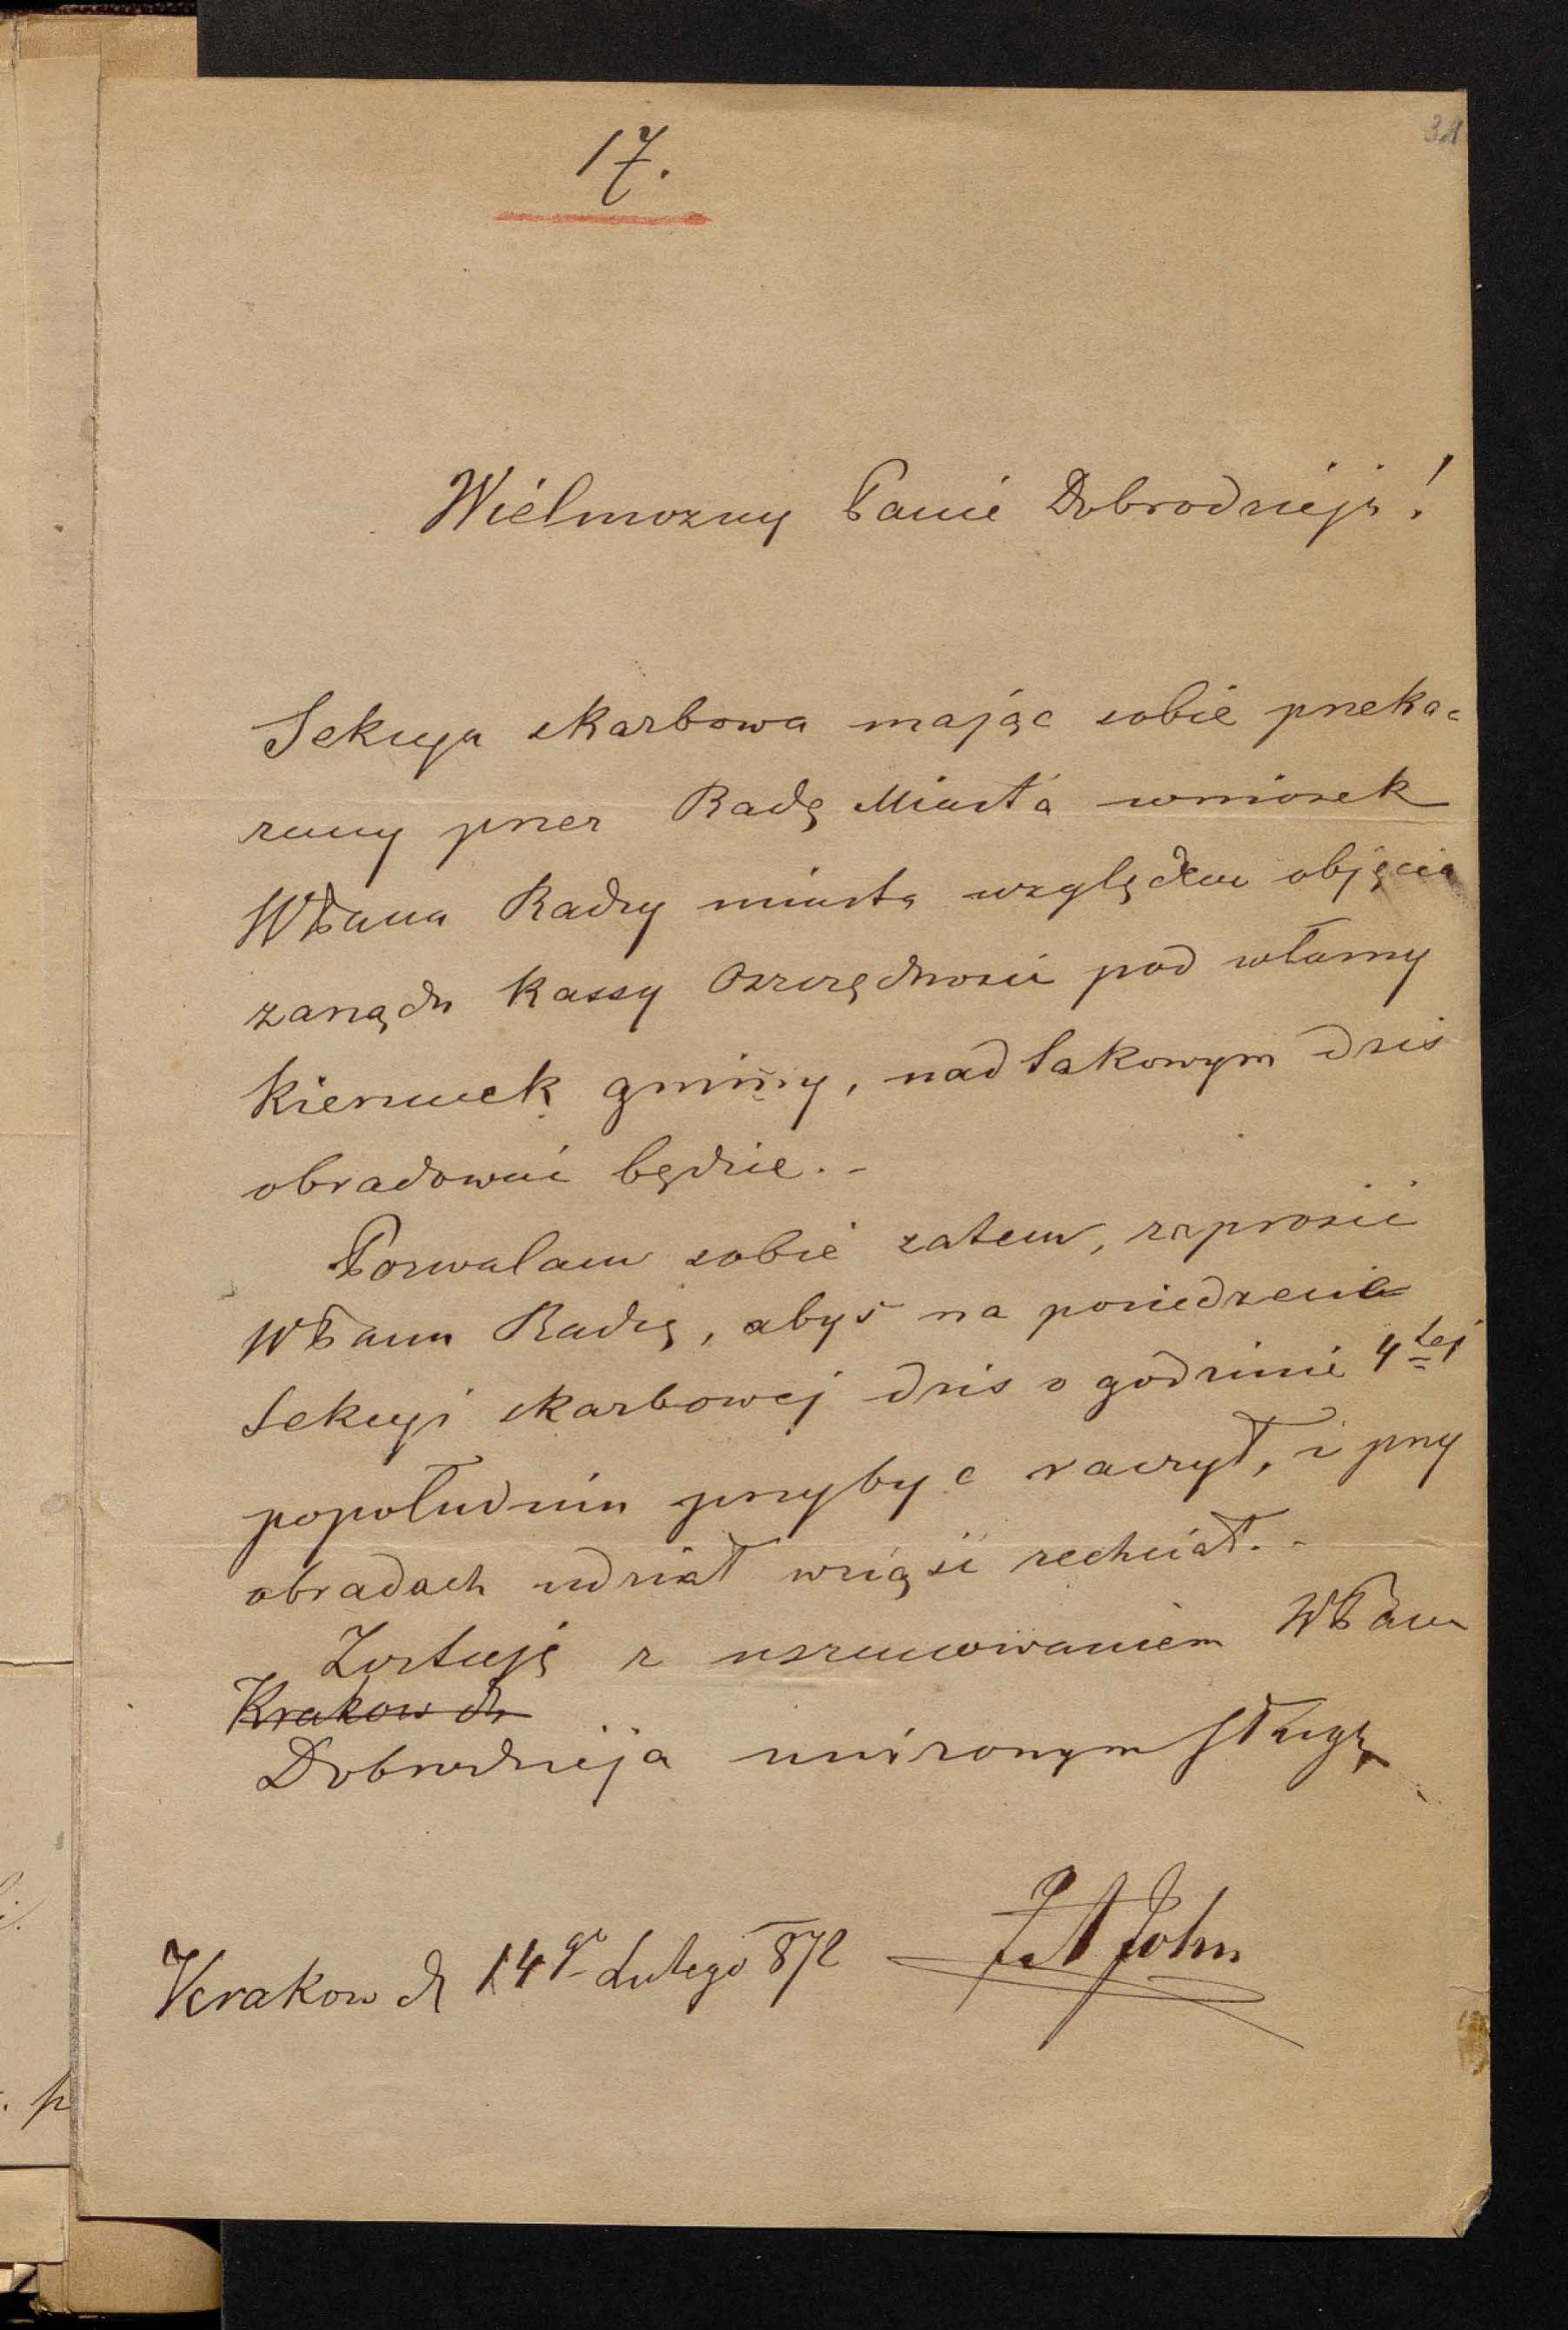 31
17.
Wielmożny Panie Dobrodzieju!
Sekcya skarbowa mając sobie przeka=
zany przez Radę Miasta wniosek
WPana Radzy miasta względem objęcia
zarządu Kassy Oszczędności pod własny
kierunek gminy, nad takowym dziś
obradować będzie. –
Pozwalam sobie zatem, zaprosić
WPana Radzę, abyś na posiedzenie
Sekcyi skarbowej dziś o godzinie 4tej
popołudniu przybyć raczył, i przy
obradach udział wziąść zechciał. –
Zostaję z uszanowaniem WPana
Krakow dn
Dobrodzieja uniżonym sługą
FA John
Krakow d 14go Lutego 872